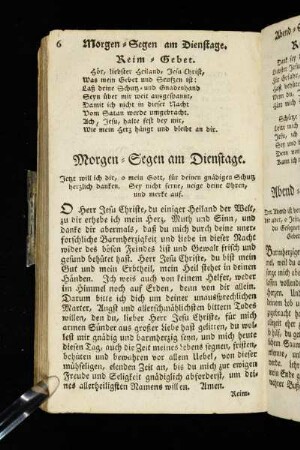 6 Morgen-Segen am Dienstage.
Reim-Gebet.
Hör, liebster Heiland, Jesu Christ,
Was mein Gebet und Seufzen ist:
Laß deine Schutz- und Gnadenhand
Seyn über mir weit ausgespannt,
Damit ich nicht in dieser Nacht
Vom Satan werde umgebracht.
Ach, Jesu, halte fest bey mir,
Wie mein Herz hängt und bleibt an dir.
Morgen-Segen am Dienstage.
Jetzt will ich dir, o mein Gott, für deinen gnädigen Schutz
herzlich danken. Sey nicht ferne, neige deine Ohren,
und merke auf.
O Herr Jesu Christe, du einiger Heiland der Welt,
zu dir erhebe ich mein Herz, Muth und Sinn, und
danke dir abermals, daß du mich durch deine uner-
forschliche Barmherzigkeit und Liebe in dieser Nacht
wider des bösen Feindes List und Gewalt frisch und
gesund behütet hast. Herr Jesu Christe, du bist mein
Gut und mein Erbtheil, mein Heil stehet in deinen
Händen. Ich weis auch von keinem Helfer, weder
im Himmel noch auf Erden, denn von dir allein.
Darum bitte ich dich um deiner unaussprechlichen
Marter, Angst und allerschmählichsten bittern Todes
willen, den du, lieber Herr Jesu Christe, für mich
armen Sünder aus großer Liebe hast gelitten, du wol-
lest mir gnädig und barmherzig seyn, und mich heute
diesen Tag, auch die Zeit meines Lebens segnen, fristen,
behüten und bewahren vor allem Uebel, von dieser
mühseligen, elenden Zeit an, bis du mich zur ewigen
Freude und Seligkeit gnädiglich abforderst, um dei-
nes allerheiligsten Namens willen. Amen.
Reim-
Abend-S